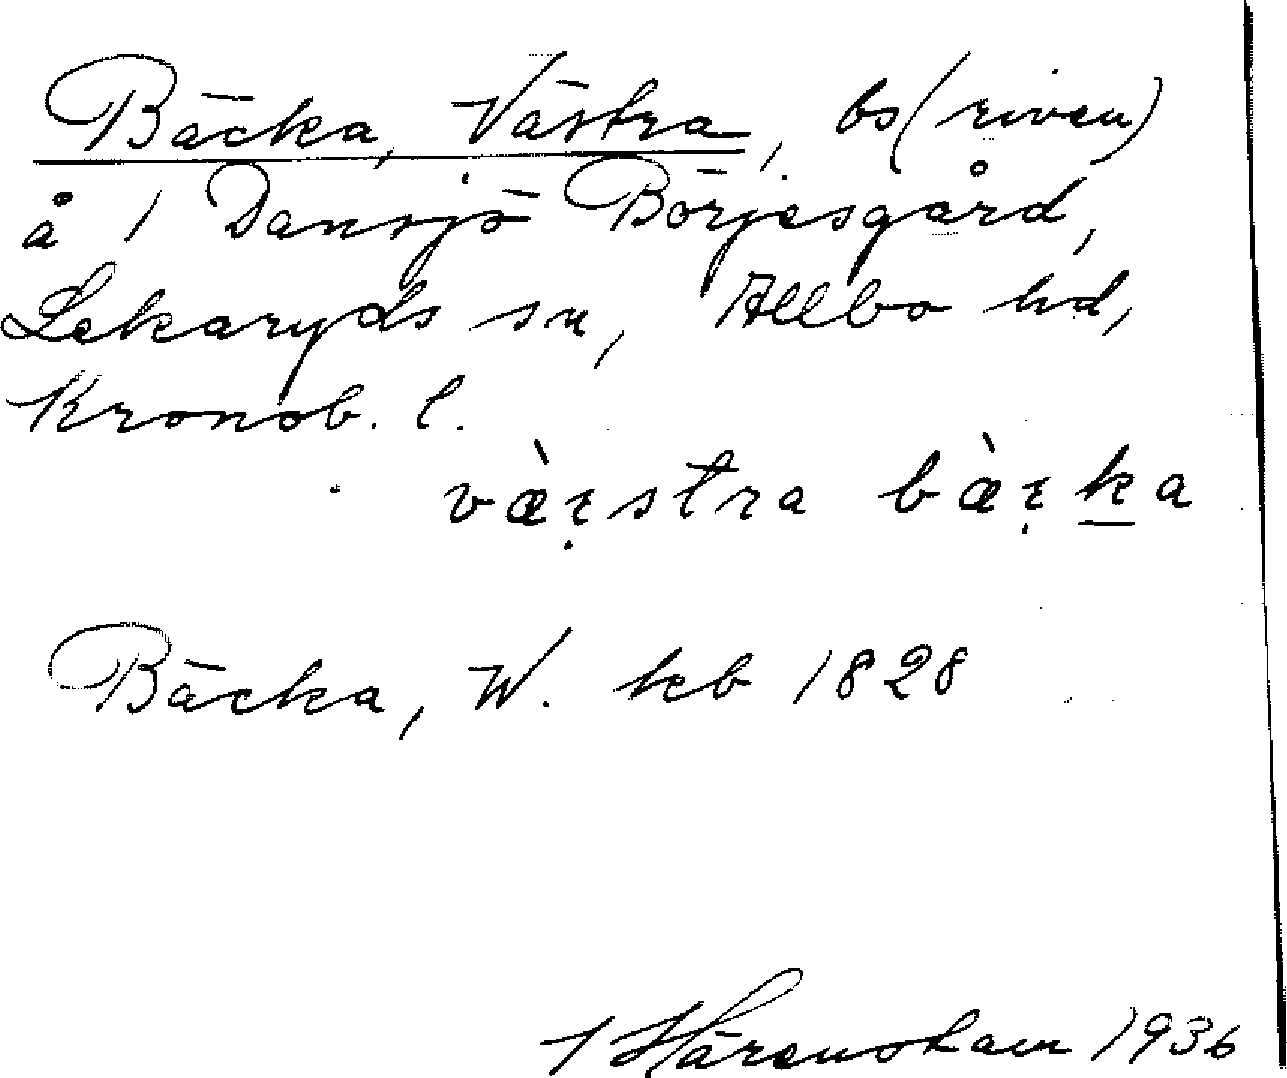 Bäcka, Västra, bs (riven)
å 1 Dansjö Börjesgård,
Lekaryds sn, Allbo hd,
Kronob. l.
væ̀ɀ̣stra bæ̀ɀ̣ḵa
Bäcka, W. kb 1828
1936